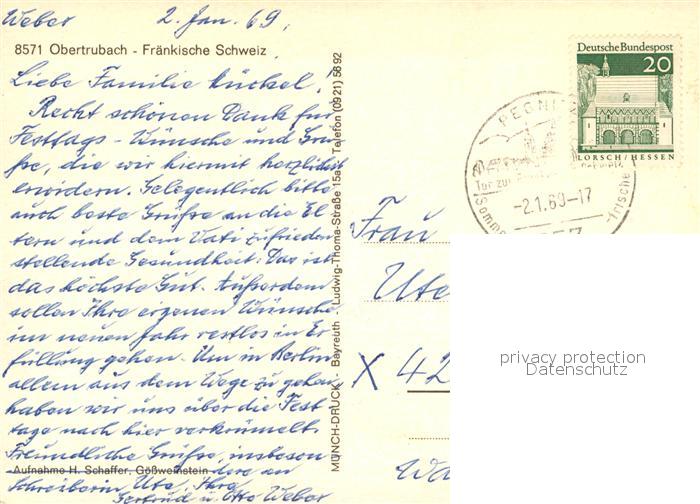 Weber 2. Jan. 69.
8571 Obertrubach - Fränkische Schweiz
Liebe Familie Kückel!
Recht schönen Dank für
Festtags-Wünsche und Grü-
ße, die wir hiermit herzlichst
erwidern. Gelegentlich bitte
auch beste Grüße an die El-
tern und dem Vati zufrieden
stellende Gesundheit: Das ist
das höchste Gut. Außerdem
sollen Ihre eigenen Wünsche
im neuen Jahr restlos in Er-
füllung gehen. Um in Berlin
allem aus dem Wege zu gehen
haben wir uns über die Fest
tage nach hier verkrümelt.
Freundliche Grüße, insbeson
Aufnahme H. Schaffer, Gößweinstein dere der
Schreiberin Ute, Ihre
Gertrud u. Otto Weber
MÜNCH-DRUCK - Bayreuth - Ludwig-Thoma-Straße 15a - Telefon (0921) 5692
Deutsche Bundespost
20
LORSCH/HESSEN
PEGNITZ
Tor zur
-2.1.69-17
Somme
frische
Frau
Ute
X 42
privacy protection
Datenschutz